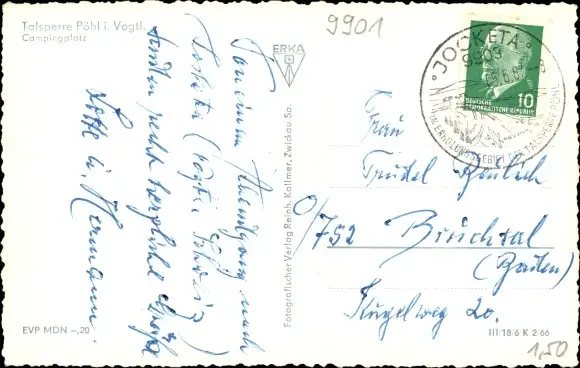 Talsperre Pöhl i. Vogtl.
Campingplatz
9901
ERKA
Von einem
nach
Jocketa (Vogtl. Schweiz)
senden recht herzliche Grüße
Lotte u. Hermann
Fotografischer Verlag Reinh. Kallmer, Zwickau Sa.
JOCKETA
9903
10
DEUTSCHE
DEMOKRATISCHE REPUBLIK
IM ERHOLUNGSGEBIET DER TALSPERRE PÖHL
Frau
Trudel
0/752 Bruchsal
(Baden)
Kugelweg 20.
EVP MDN -,20
III/18/6 K 2/66
1,50